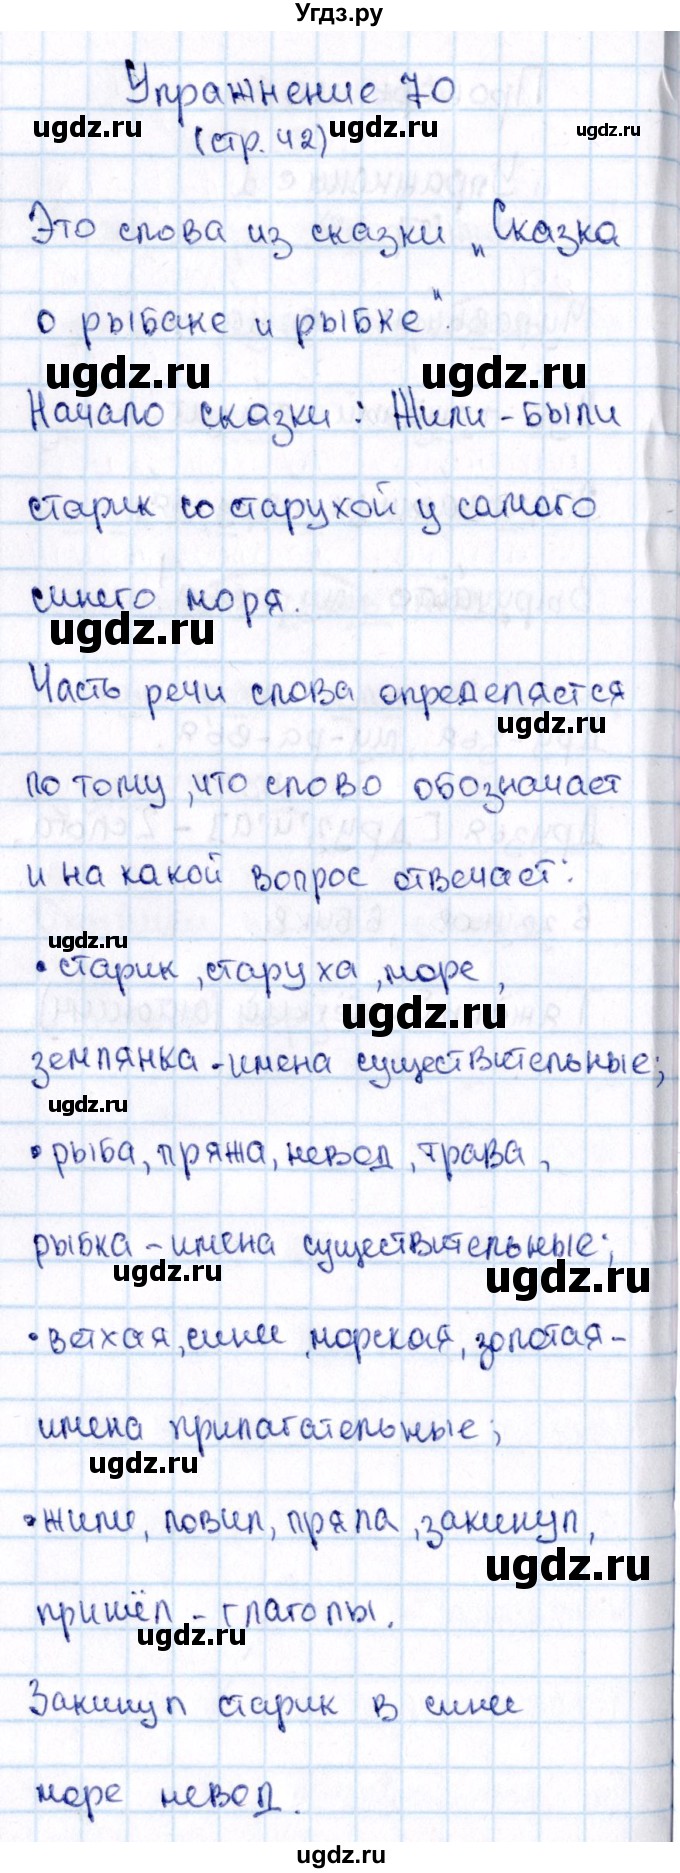 Угдз.ру
Упражнение 70
ugdz.ru (стр. 42) ugdz.ru ugdz.ru
Это слова из сказки „Сказка
о рыбаке и рыбке".
ugdz.ru ugdz.ru
Начало сказки: Жили-были
старик со старухой у самого
синего моря.
ugdz.ru
Часть речи слова определяется
ugdz.ru
по тому, что слово обозначает
и на какой вопрос отвечает:
ugdz.ru
• старик, старуха, море,
ugdz.ru
землянка - имена существительные;
ugdz.ru
• рыба, пряжа, невод, трава,
рыбка - имена существительные;
ugdz.ru ugdz.ru
• ветхая, синее, морская, золотая -
имена прилагательные;
ugdz.ru
• жили, ловил, пряла, закинул,
ugdz.ru
пришёл - глаголы.
ugdz.ru
Закинул старик в синее
море невод.
ugdz.ru